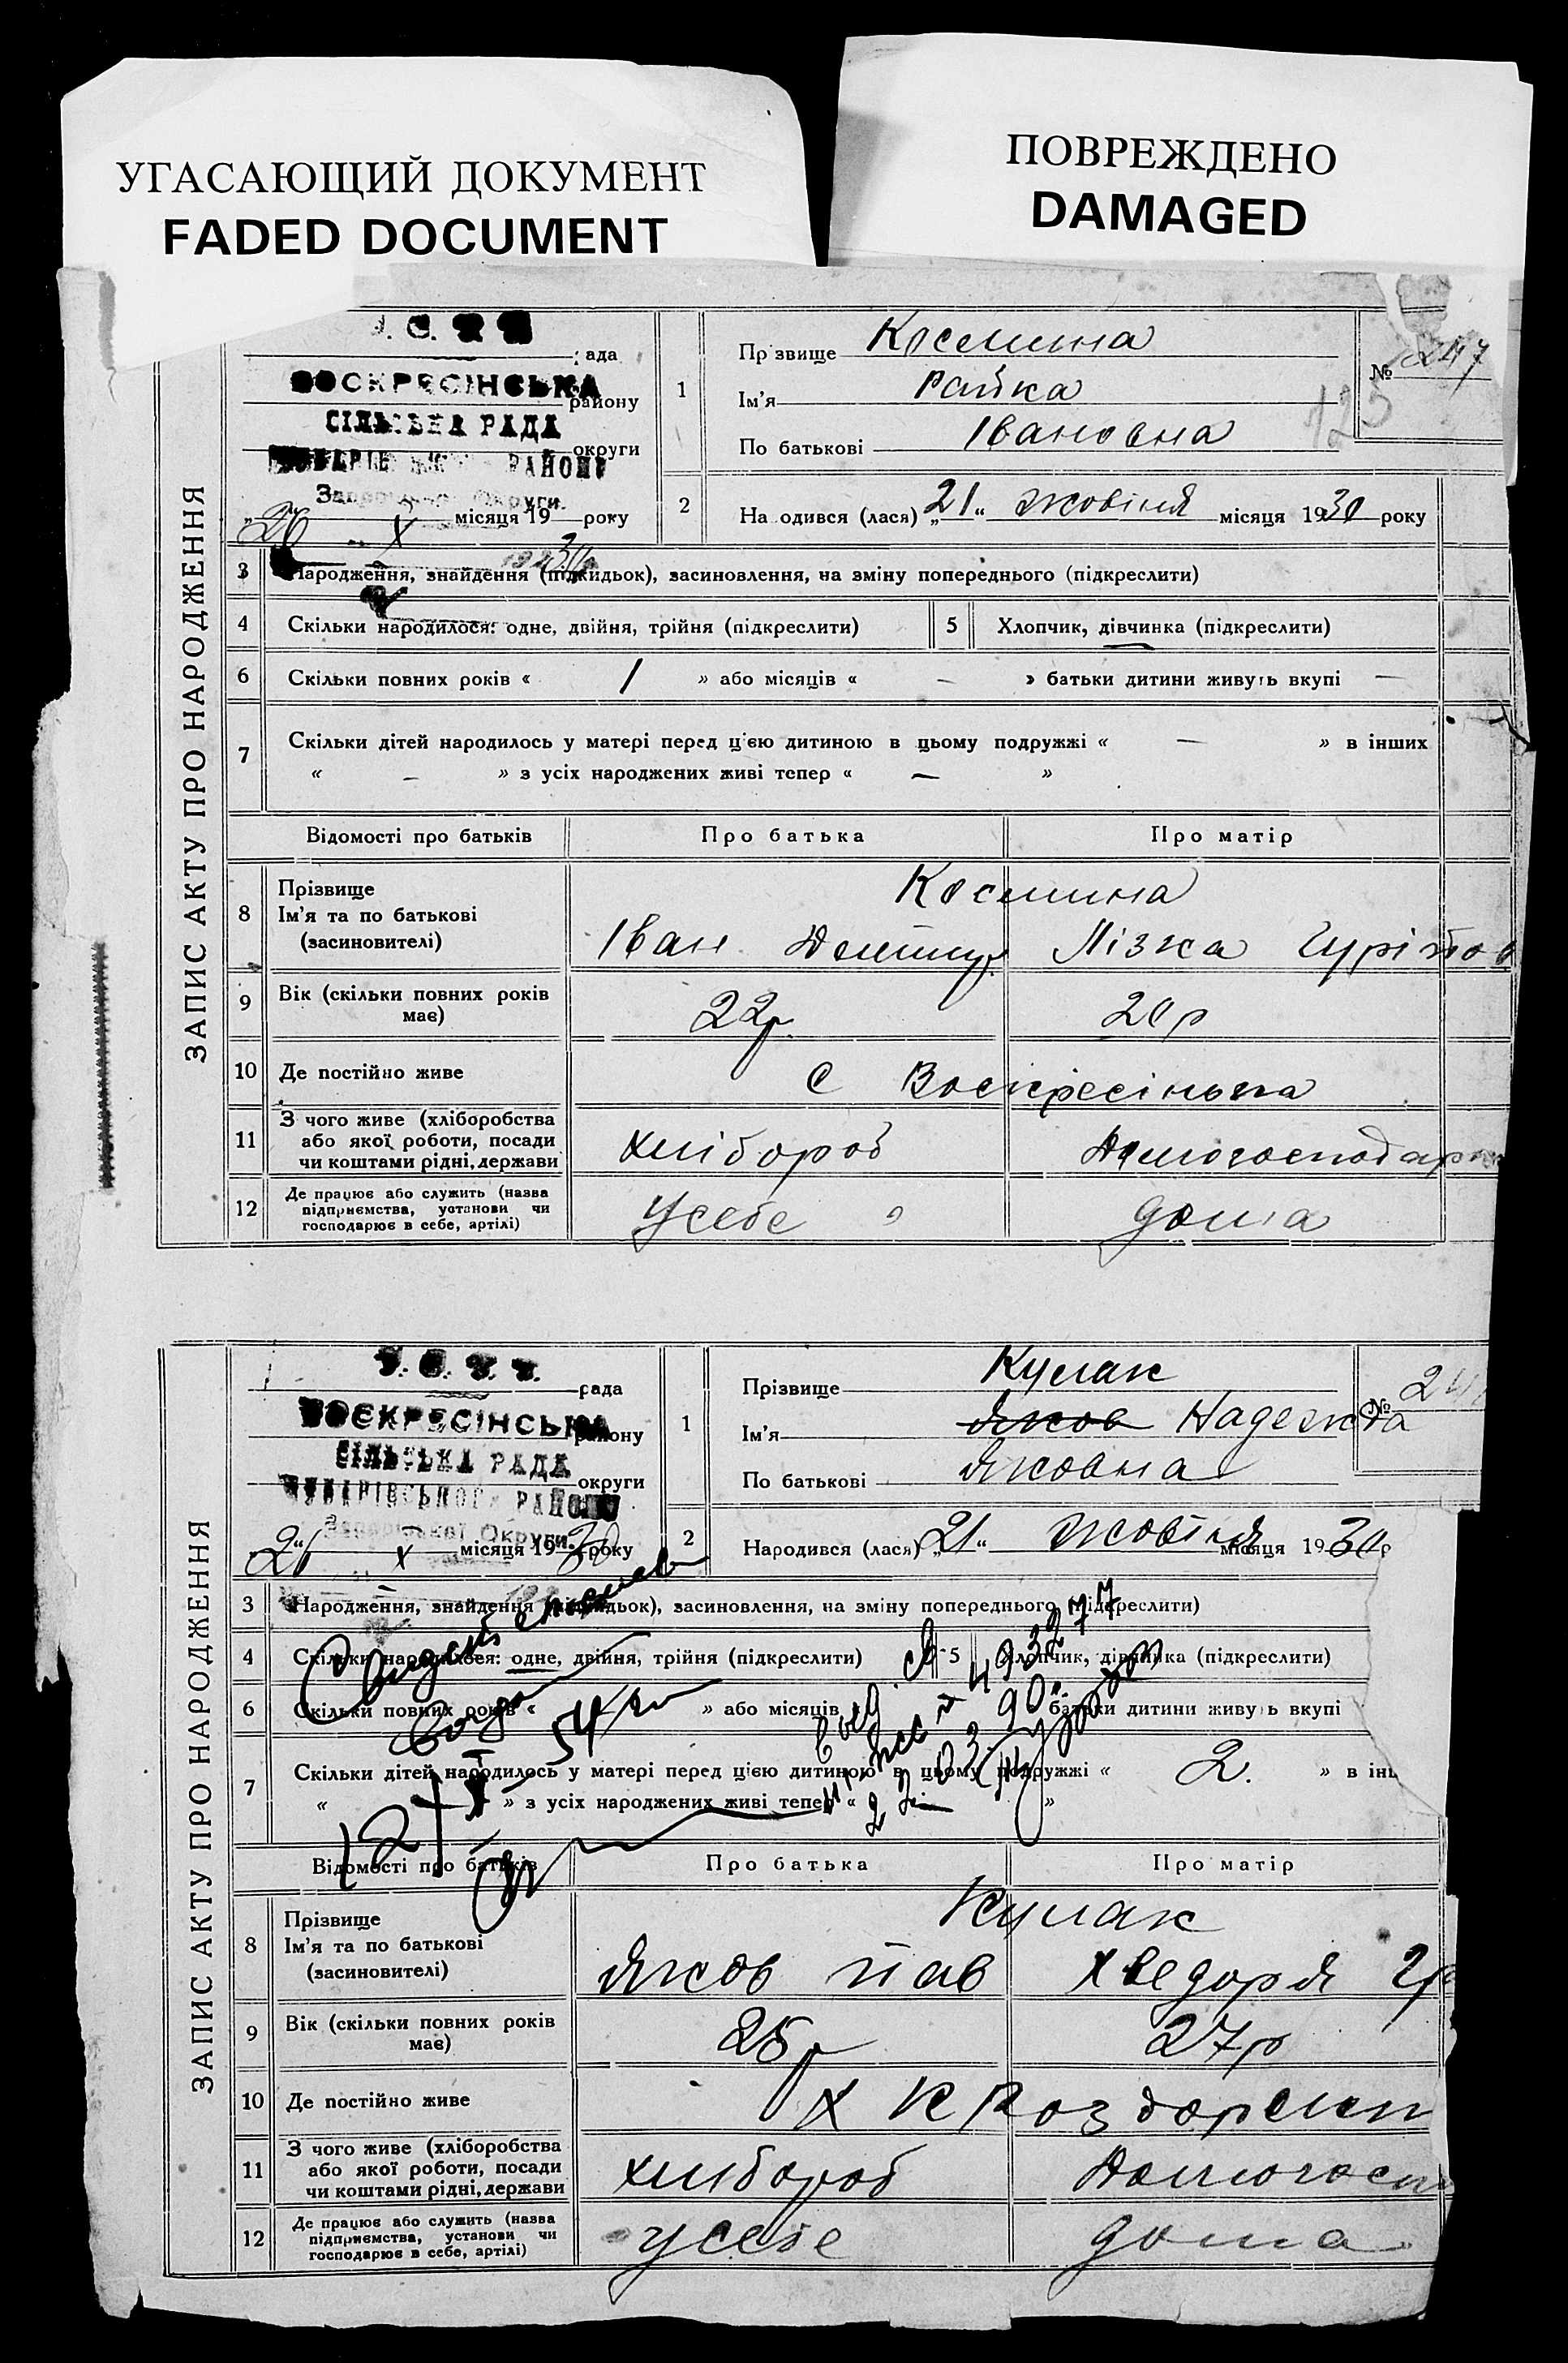 УГАСАЮЩИЙ ДОКУМЕНТ
FADED DOCUMENT
ПОВРЕЖДЕНО
DAMAGED
ЗАПИС АКТУ ПРО НАРОДЖЕННЯ
ада
ВОСКРЕСІНСЬКА
району
СІЛЬСЬКА РАДА
округи
РАЙОНУ
Округи
26 X місяця 19 року
1
Пр звище Космина
Ім'я Райка
По батькові Івановна
№ 247
125
2
На одився (лася) „21“ жовтня місяця 1930 року
3 Народження, знайдення (підкидьок), засиновлення, на зміну попереднього (підкреслити)
4 Скільки народилося: одне, двійня, трійня (підкреслити)
5 Хлопчик, дівчинка (підкреслити)
6 Скільки повних років « 1 » або місяців « — » батьки дитини живуть вкупі —
7 Скільки дітей народилось у матері перед цією дитиною в цьому подружжі « — » в інших
« — » з усіх народжених живі тепер « — »
Відомості про батьків Про батька Про матір
8 Прізвище Космина
Ім'я та по батькові
(засиновителі) Іван Лізка
9 Вік (скільки повних років 22р 20р
має)
10 Де постійно живе с Воскресінька
11 З чого живе (хліборобства
або якої роботи, посади хлібороб Домогосподар
чи коштами рідні, держави
12 Де працює або служить (назва
підприємства, установи чи усебе дома
господарює в себе, артілі)
ЗАПИС АКТУ ПРО НАРОДЖЕННЯ
рада
ВОСКРЕСІНСЬКА
району
СІЛЬСЬКА РАДА
округи
ЧУБАРІВСЬКОГО РАЙОНУ
Округи
26 X місяця 1930 року
1
Прізвище Кулак
Ім'я Яков Надежда
По батькові Яковна
№ 24
2
Народився (лася) „21“ жовтня місяця 1930 р
3 Народження, знайдення (підкидьок), засиновлення, на зміну попереднього (підкреслити)
4 Скільки народилося: одне, двійня, трійня (підкреслити)
5 Хлопчик, дівчинка (підкреслити)
6 Скільки повних років « » або місяців батьки дитини живуть вкупі
7 Скільки дітей народилось у матері перед цією дитиною в цьому подружжі « 2. » в інш
« » з усіх народжених живі тепер « »
Відомості про батьків Про батька Про матір
8 Прізвище Кулак
Ім'я та по батькові
(засиновителі) Яков пав Хведоря Гр
9 Вік (скільки повних років 25р 27р
має)
10 Де постійно живе х
11 З чого живе (хліборобства
або якої роботи, посади хлібороб Домогосп
чи коштами рідні, держави
12 Де працює або служить (назва
підприємства, установи чи усебе дома
господарює в себе, артілі)